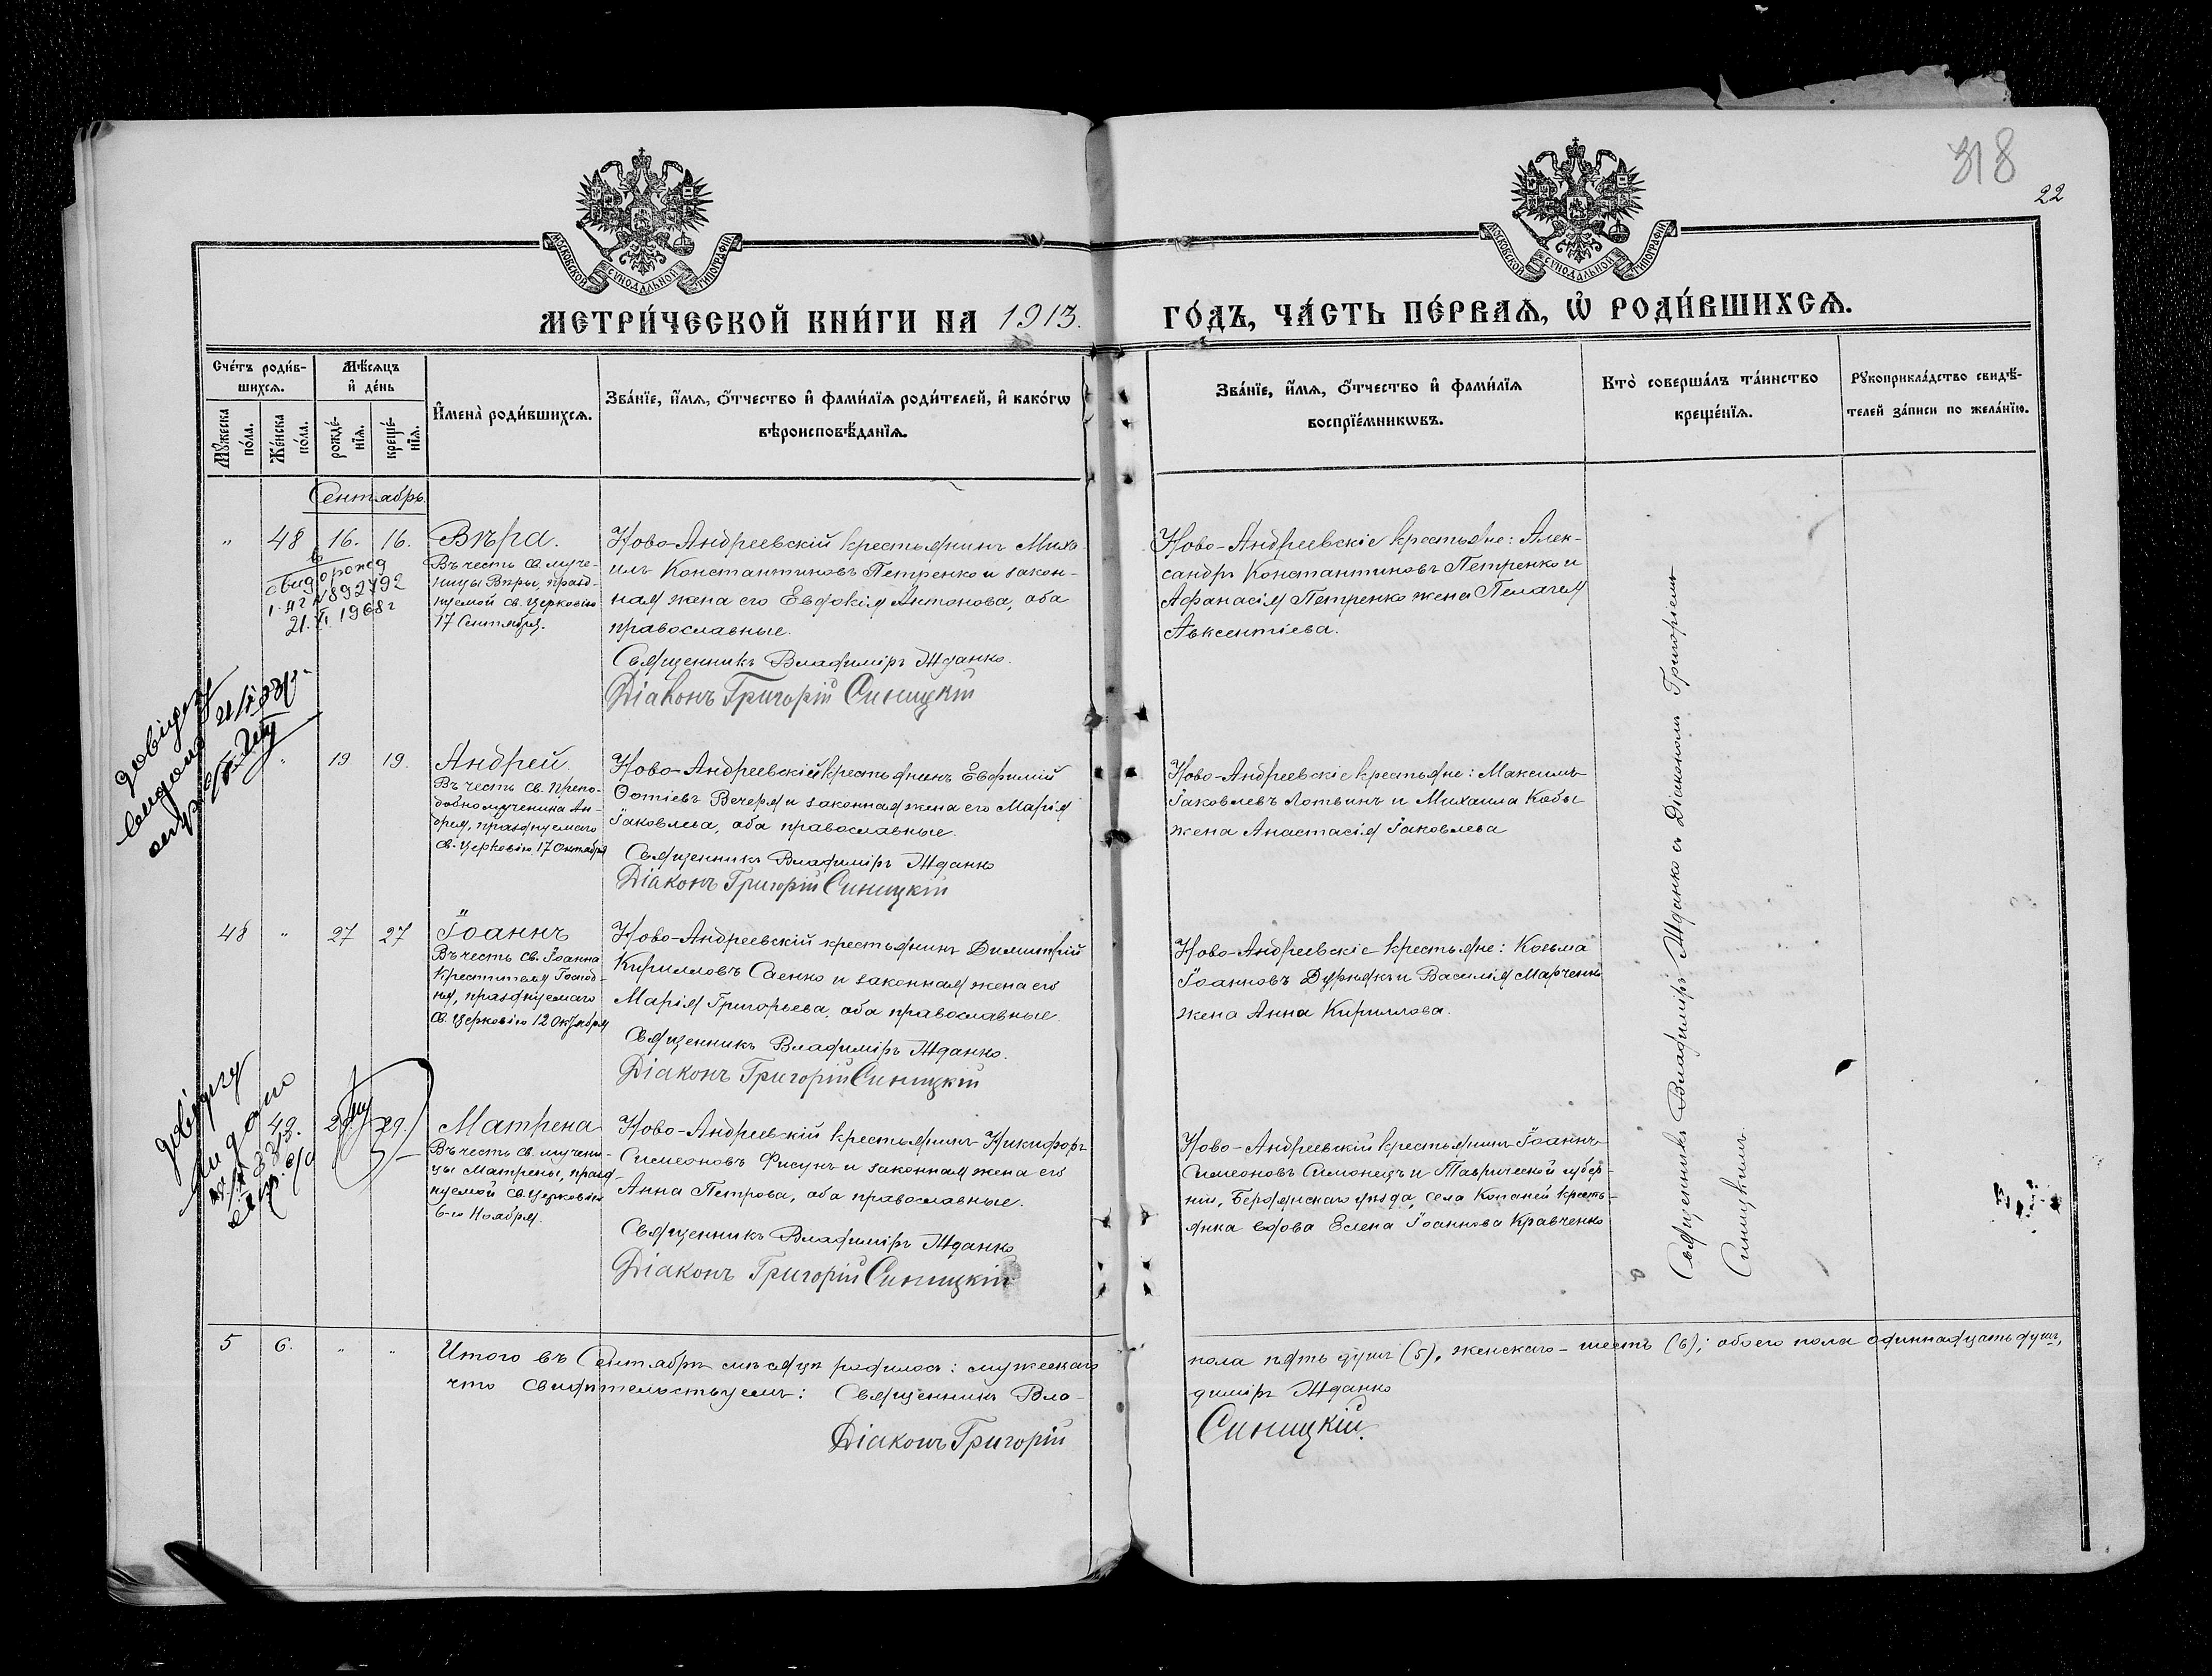 318
22
МОСКОВСКОЙ СѴНОДАЛЬНОЙ ТИПОГРАФІИ
МОСКОВСКОЙ СѴНОДАЛЬНОЙ ТИПОГРАФІИ
МЕТРИ́ЧЕСКОЙ КНИ́ГИ НА 1913.
ГО́ДЪ, ЧА́СТЬ ПЕ́РВАѦ, Ѡ҆ РОДИ́ВШИХСѦ.
Сче́тъ роди́в-
шихсѧ.
Мѣ́сѧцъ
и҆ де́нь
Мꙋ́жеска
по́ла.
Же́нска
по́ла.
рожде́-
нїѧ.
креще́-
нїѧ.
И҆мена̀ роди́вшихсѧ.
Зва́нїе, и҆́мѧ, ѻ҆́тчество и҆ фами́лїѧ роди́телей, и҆ како́гѡ
вѣроисповѣ́данїѧ.
Зва́нїе, и҆́мѧ, ѻ҆́тчество и҆ фами́лїѧ
воспрїе́мникѡвъ.
Кто̀ соверша́лъ та́инство
креще́нїѧ.
Рꙋкоприкла́дство свидѣ́-
телей за́писи по жела́нїю.
Сентябрь.
" 48 16. 16. Вѣра.
Въ честь св. муче-
ницы Вѣры, празд-
нуемой св. Церковію
17 Сентября.
21. XI. 1968 г
Ново-Андреевскій крестьянинъ Миха-
илъ Константиновъ Петренко и закон-
ная жена его Евдокія Антонова, оба
православные.
Священникъ Владиміръ Жданко.
Діаконъ Григорій Синицкій
Ново-Андреевскіе крестьяне: Алек-
сандръ Константиновъ Петренко и
Афанасія Петренко жена Пелагея
Авксентіева.
довідку
видано
" 19 19. Андрей.
Въ честь св. препо-
добномученика Ан-
дрея, празднуемаго
св. Церковію 17 Октября
Ново-Андреевскій крестьянинъ Евфимій
Ѳотіевъ Вечеря и законная жена его Марія
Іаковлева, оба православные.
Священникъ Владиміръ Жданко
Діаконъ Григорій Синицкій
Ново-Андреевскіе крестьяне: Максимъ
Іаковлевъ Лотвинъ и Михаила Кобы
жена Анастасія Іаковлева
48 " 27 27 Іоаннъ
Въ честь св. Іоанна
Крестителя Господ-
ня, празднуемаго
св. Церковію 12 Октября
Ново-Андреевскій крестьянинъ Димитрій
Кирилловъ Саенко и законная жена его
Марія Григорьева, оба православные.
Священникъ Владиміръ Жданко.
Діаконъ Григорій Синицкій
Ново-Андреевскіе крестьяне: Козьма
Іоанновъ Дудникъ и Василія Марченко
жена Анна Кириллова.
довідку
видано
49. 29. Матрена
Въ честь св. мучени-
цы Матрены, празд-
нуемой св. Церковію
6-го Ноября.
Ново-Андреевскій крестьянинъ Никифоръ
Симеоновъ Фисунъ и законная жена его
Анна Петрова, оба православные.
Священникъ Владиміръ Жданко
Діаконъ Григорій Синицкій
Ново-Андреевскій крестьянинъ Іоаннъ
Симеоновъ Симонецъ и Таврической губер-
ніи, Бердянскаго уѣзда, села Копаней кресть-
янка вдова Елена Іоаннова Кравченко
Священникъ Владиміръ Жданко съ Діакономъ Григоріемъ
Синицкимъ.
5 6. " " Итого въ Сентябрѣ мѣсяцѣ родилось: мужескаго
пола пять душъ (5), женскаго - шесть (6); обоего пола одиннадцать душъ,
что свидѣтельствуемъ: Священникъ Вла-
димір Жданко
Діаконъ Григорій
Синицкій.